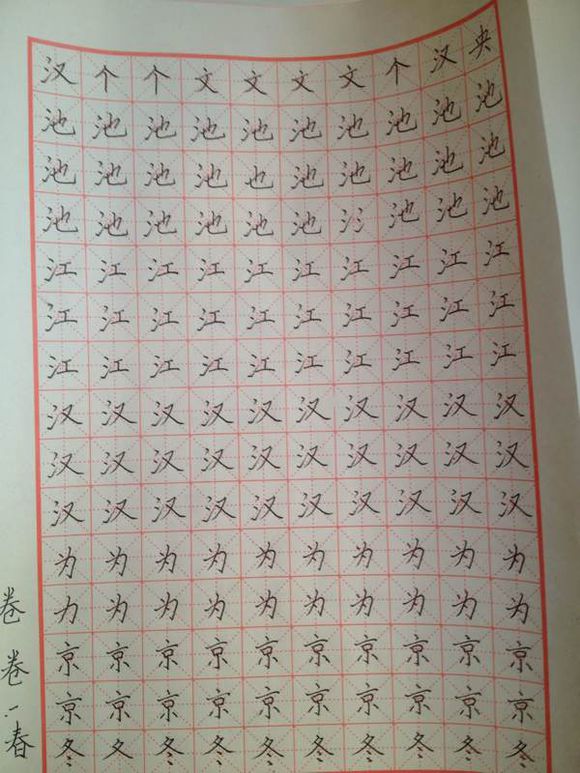 汉个个文文文文个汉央
池池池池池池池池池池
池池池池也池池池池池
池池池池池池氵池池池
江江江江江江江江江江
江江江江江江江江江江
江江江江江江江江江江
汉汉汉汉汉汉汉汉汉汉
汉汉汉汉汉汉汉汉汉汉
汉汉汉汉汉汉汉汉汉汉
为为为为为为为为为为
力为为为为为为为为为
京京京京京京京京京京
京京京京京京京京京京
冬夂冬冬冬冬冬冬冬冬
卷
卷
春